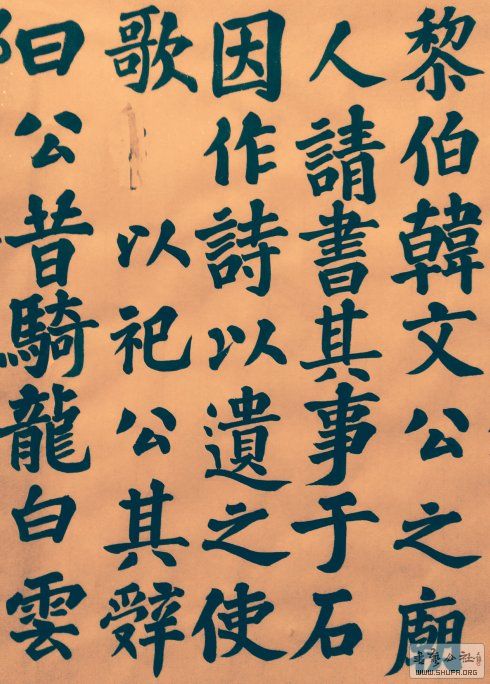 黎伯韓文公之廟
人請書其事于石
因作詩以遺之使
歌以祀公其辤
曰公昔騎龍白雲
WWW.SHUFA.ORG